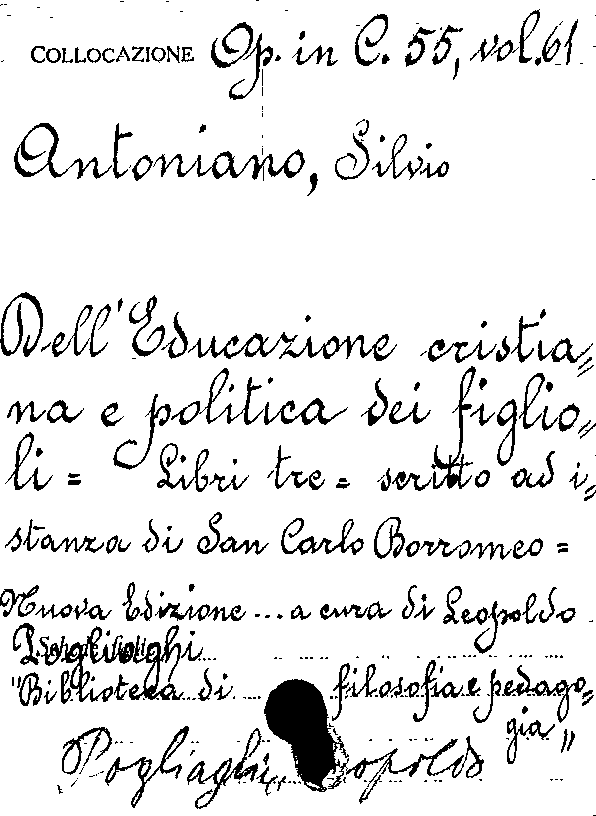 COLLOCAZIONE Op. in C. 55, vol. 61
Antoniano, Silvio
Dell'Educazione cristia=
na e politica dei figlio=
li = Libri tre = scritto ad i=
stanza di San Carlo Borromeo =
Nuova Edizione ... a cura di Leopoldo
"Biblioteca di filosofia e pedago=
gia"
Pogliaghi, Leopoldo